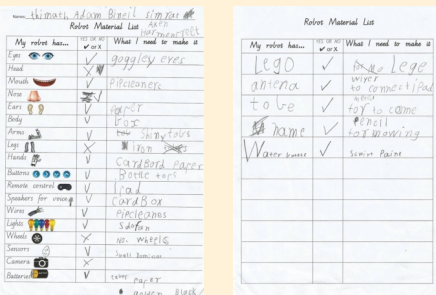 Name: thinath Adam Bineil simran
Aken
Robot Material List Harmeenfelt
My robot has... YES OR NO ✓ or X What I need to make it
Eyes ✓ goggley eyes
Head X
Mouth ✓ Pipecleaners
Nose ✓
Ears ✓ Paper
Body ✓ box
Arms ✓ Shiny tobs
Legs X Iron
Hands ✓ CardBord Paper
Buttons ✓ Bottle tops
Remote control ✓ Ipad
Speakers for voice ✓ CardBox
Wires ✓ Pipcleanos
Lights ✓
Wheels X No wheels
Sensors ✓
Camera X
Batteries ✓ paper
golden Black
Robot Material List
My robot has... YES OR NO ✓ or X What I need to make it
Lego ✓ Lege
antena ✓ wirer
to connect ipad
tobe ✓ for to come
name ✓ Pencil
for drawing
Water ✓ Paint